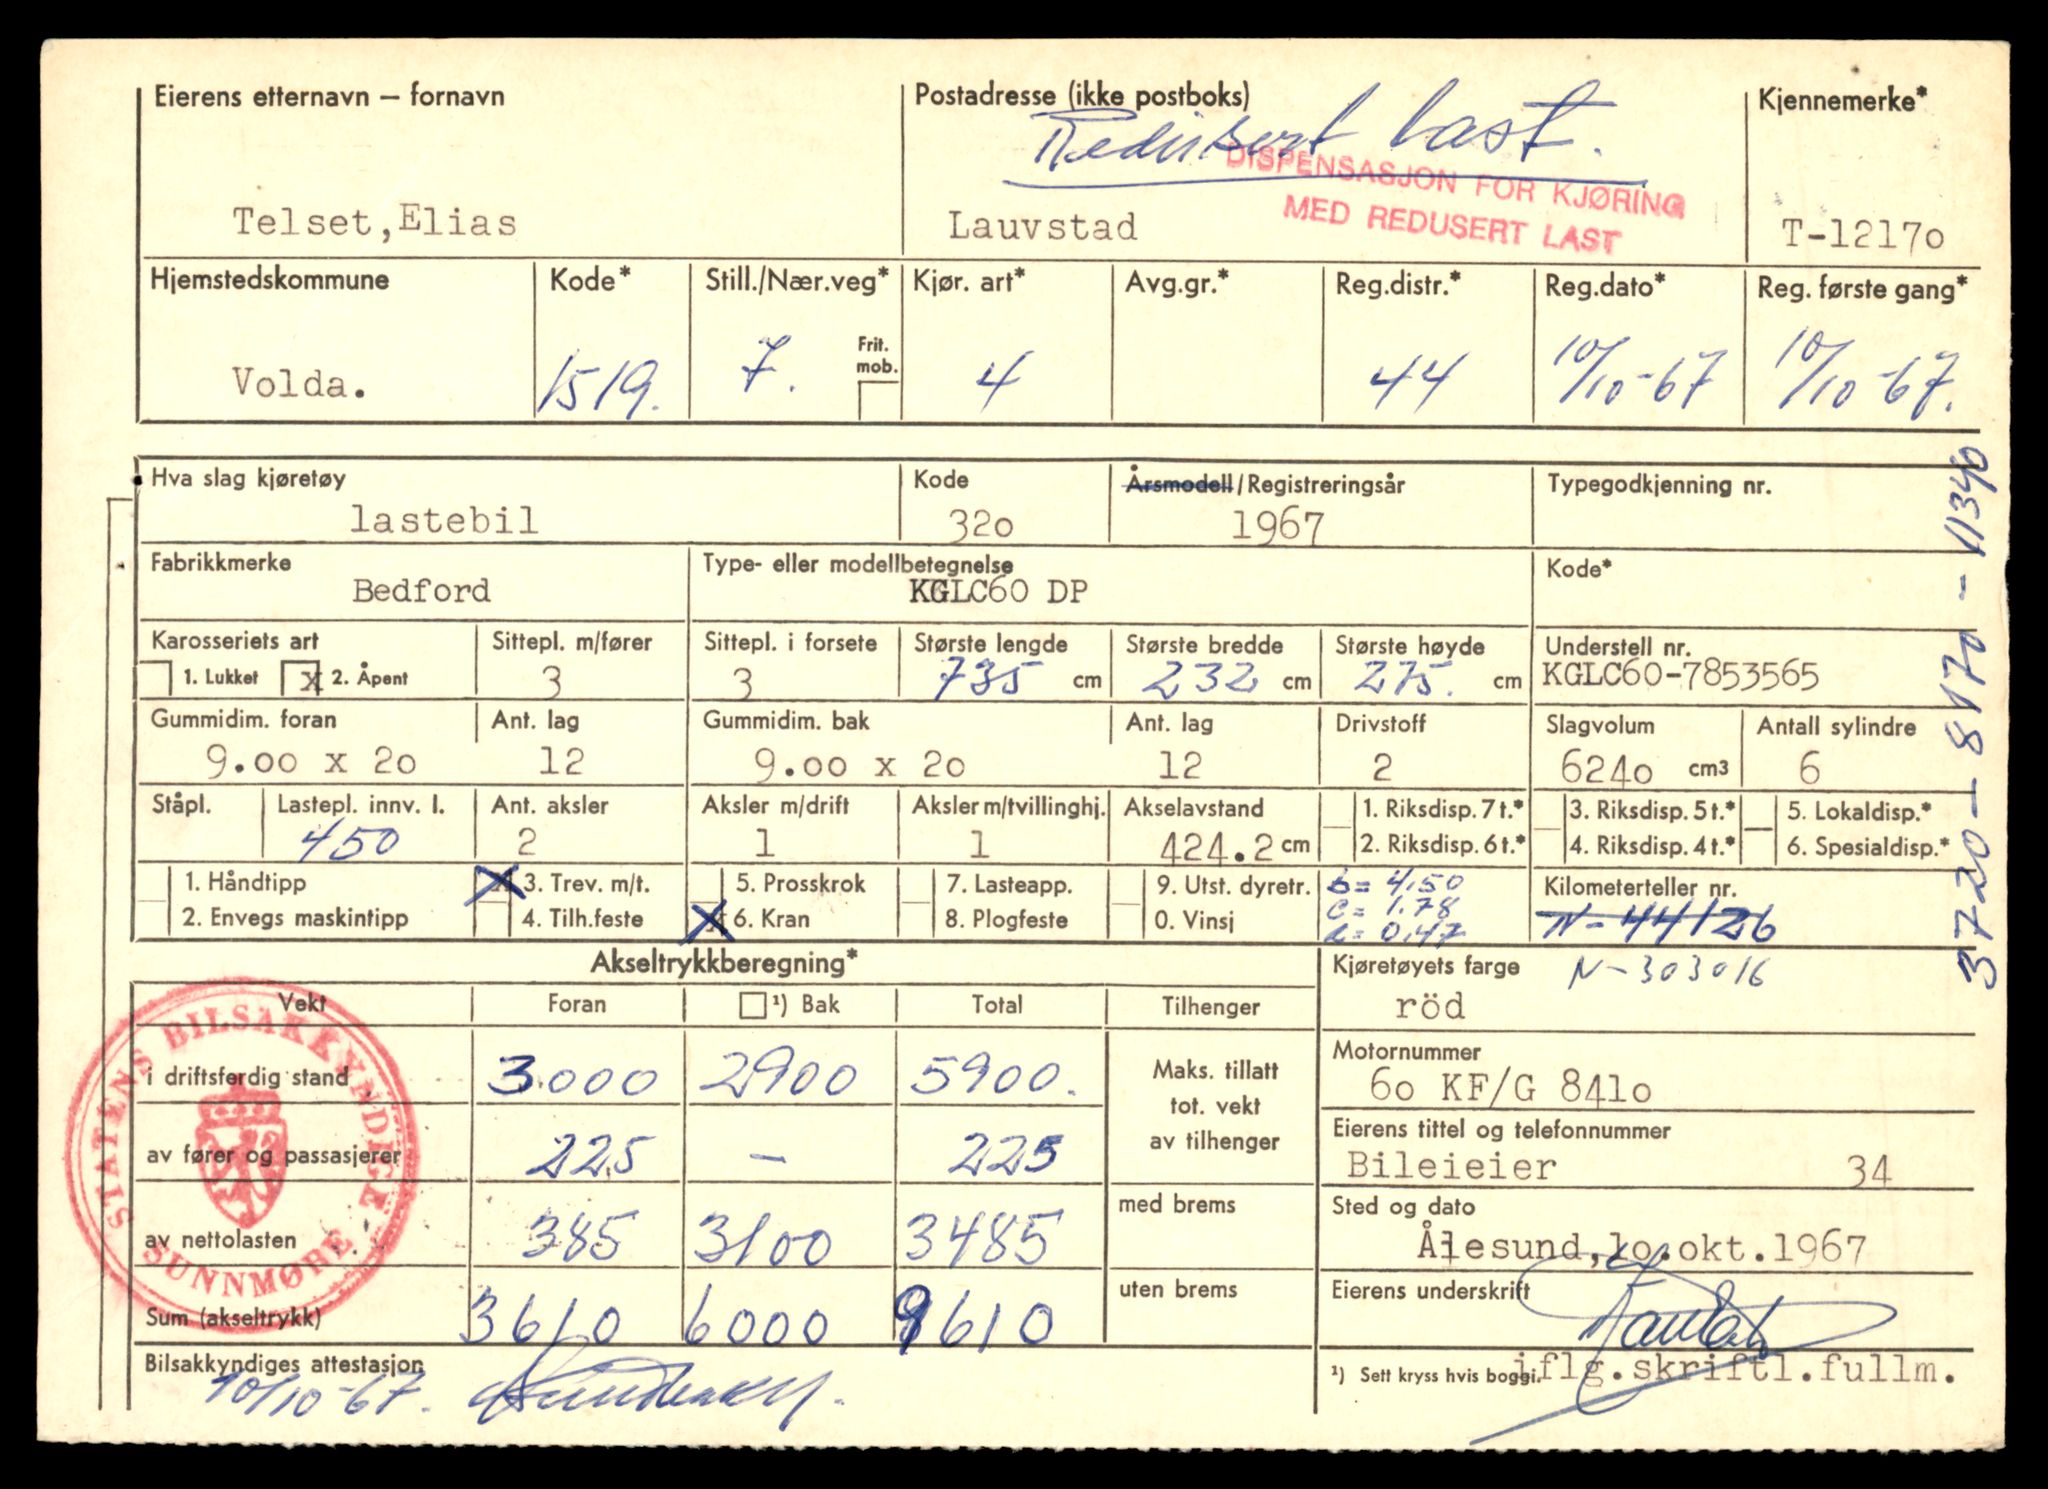 Eierens etternavn – fornavn
Postadresse (ikke postboks)
Kjennemerke*
Redusert last.
DISPENSASJON FOR KJØRING
MED REDUSERT LAST
Telset,Elias
Lauvstad
T-12170
Hjemstedskommune
Kode*
Still./Nær.veg*
Kjør. art*
Avg.gr.*
Reg.distr.*
Reg.dato*
Reg. første gang*
Volda.
1519.
7.
Frit. mob.
4
44
10/10-67
10/10-67.
Hva slag kjøretøy
Kode
Årsmodell/Registreringsår
Typegodkjenning nr.
lastebil
320
1967
Fabrikkmerke
Type- eller modellbetegnelse
Kode*
Bedford
KGLC60 DP
Karosseriets art
Sittepl. m/fører
Sittepl. i forsete
Største lengde
Største bredde
Største høyde
Understell nr.
1. Lukket
x 2. Åpent
3
3
735 cm
232 cm
275. cm
KGLC60-7853565
Gummidim. foran
Ant. lag
Gummidim. bak
Ant. lag
Drivstoff
Slagvolum
Antall sylindre
9.00 x 20
12
9.00 x 20
12
2
6240 cm3
6
Ståpl.
Lastepl. innv. l.
Ant. aksler
Aksler m/drift
Aksler m/tvillinghj.
Akselavstand
1. Riksdisp. 7 t.*
3. Riksdisp. 5 t.*
5. Lokaldisp.*
450
2
1
1
424.2 cm
2. Riksdisp. 6 t.*
4. Riksdisp. 4 t.*
6. Spesialdisp.*
1. Håndtipp
x 3. Trev. m/t.
5. Prosskrok
7. Lasteapp.
9. Utst. dyretr.
b = 4,50
Kilometerteller nr.
2. Envegs maskintipp
4. Tilh.feste
x 6. Kran
8. Plogfeste
0. Vinsj
c = 1.78
a = 0,47
N-44126
3720-8170-11340
Akseltrykkberegning*
Kjøretøyets farge
N-303016
Vekt
Foran
¹) Bak
Total
Tilhenger
röd
i driftsferdig stand
3.000
2900
5900.
Maks. tillatt
tot. vekt
av tilhenger
Motornummer
60 KF/G 8410
av fører og passasjerer
225
–
225
Eierens tittel og telefonnummer
Bileieier
34
av nettolasten
385
3100
3485
med brems
Sted og dato
Ålesund,10.okt.1967
Sum (akseltrykk)
3610
6000
9610
uten brems
Eierens underskrift
Bilsakkyndiges attestasjon
10/10-67.
¹) Sett kryss hvis boggi.
iflg.skriftl.fullm.
STATENS BILSAKKYNDIGE
SUNNMØRE